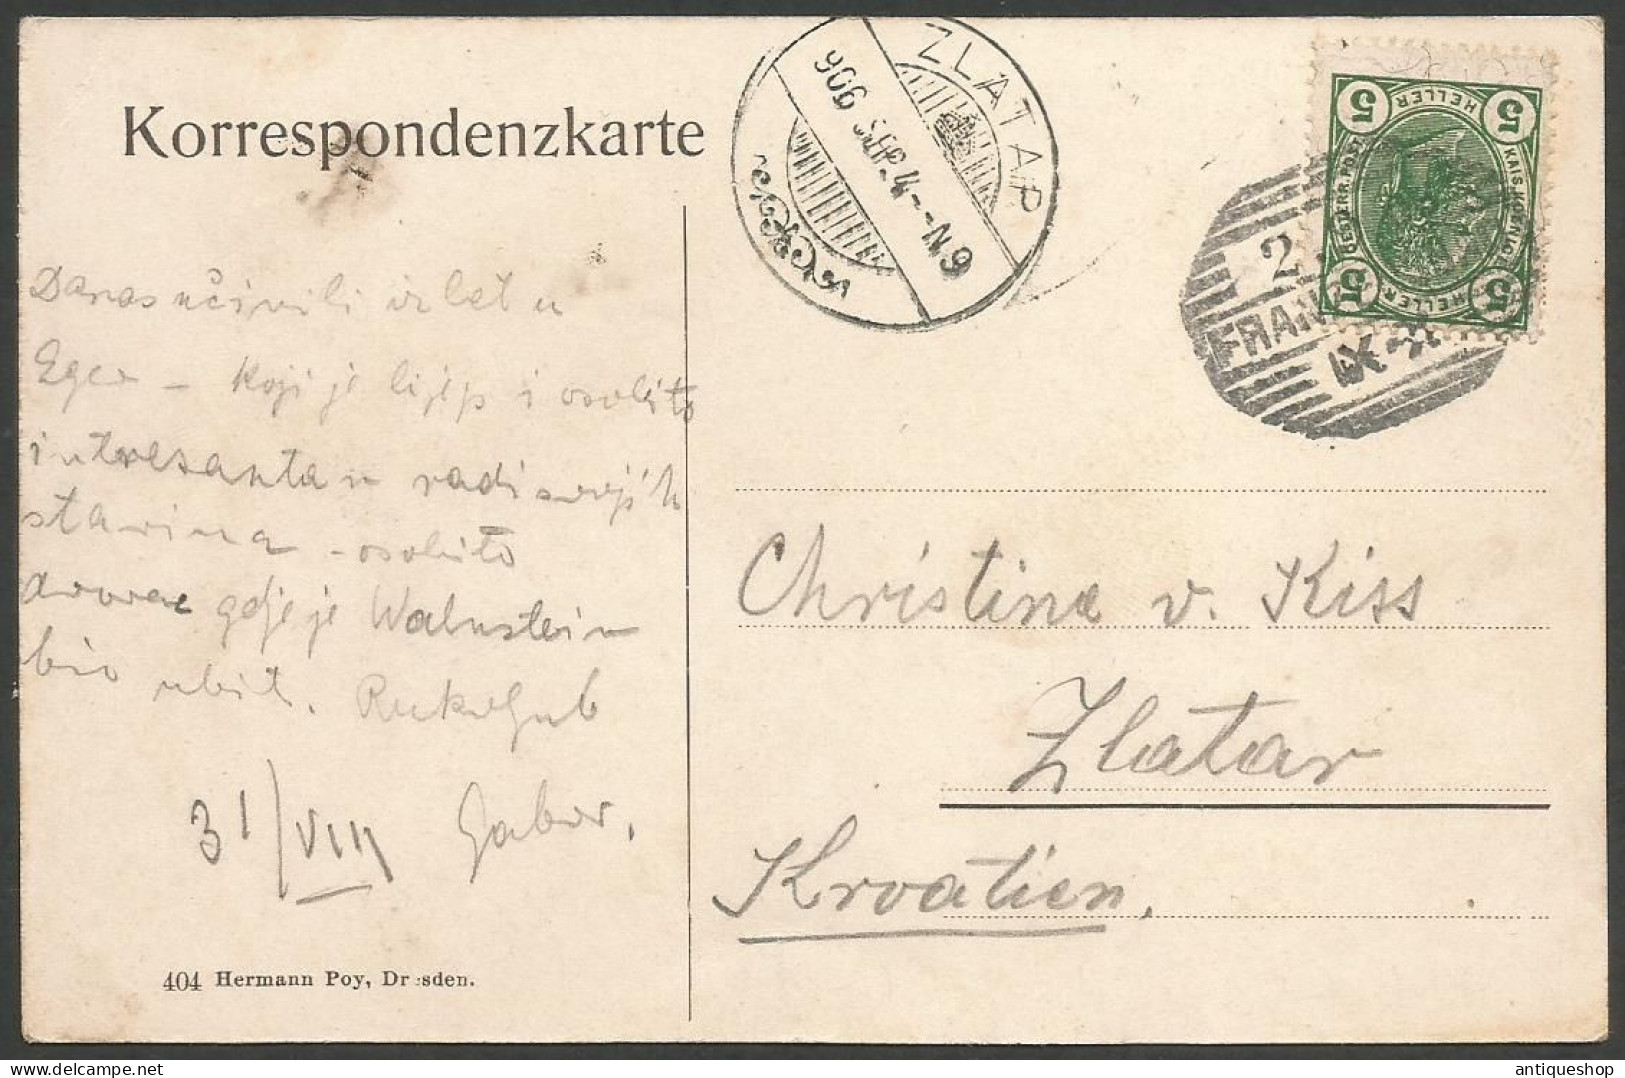 Korrespondenzkarte
ZLATAR
906 SEP. 4 - N9
5 5
HELLER
KAIS. KOENIGL. OESTERR. POST
HELLER
5 5
2
FRAN
IX
Danas učinili izlet u
Eger – koji je lijep i osobito
intresantan radi svojih
starina – osobito
dvorac gdje je Walnstein
bio ubit. Rukoljub
31/VIII Gabor.
Christine v. Kiss
Zlatar
Kroatien.
404 Hermann Poy, Dresden.
antiqueshop